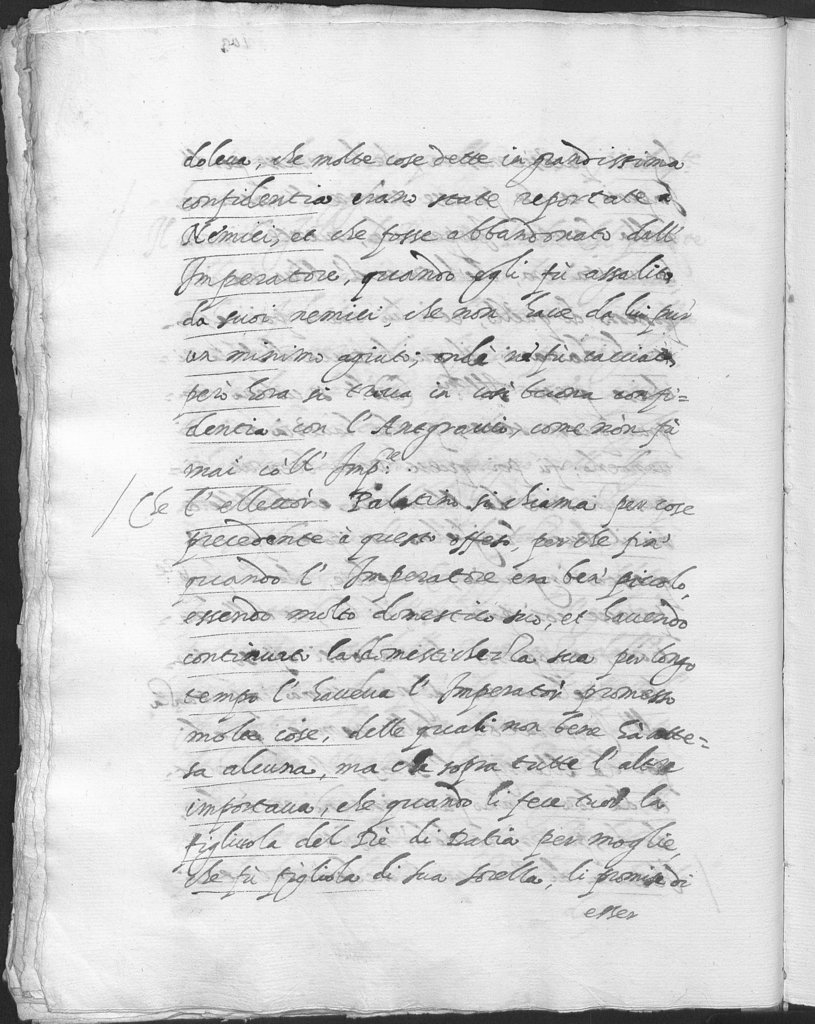 doleua, che molte cose dette in grandissima
confidentia erano state reportate à
Nemici, et che fusse abbandonato dall'
Imperatore, quando egli fù assalito
da suoi nemici, che non hace da lui pur
un minimo agiuto; onde nè fù cacciato,
però hora si troua in così buona confi=
dentia con l'Ansgrauio, come non fù
mai cò'll' Imp.re
Che l'ellettor Palatino si chiama per cose
precedente à questo offeso, perche fin'
quando l' Imperatore era ben' piccolo,
essendo molto domestico suo, et hauendo
continuato la domestichezza sua per longo
tempo l'haueua l' Imperator promesso
molte cose, delle quali non bene hà atte=
sa alcuna, ma che sopra tutte l'altre
importaua, che quando li fece tuor la
figliuola del Rè di Datia per moglie,
che fù figliola di sua sorella, li promise di
esser